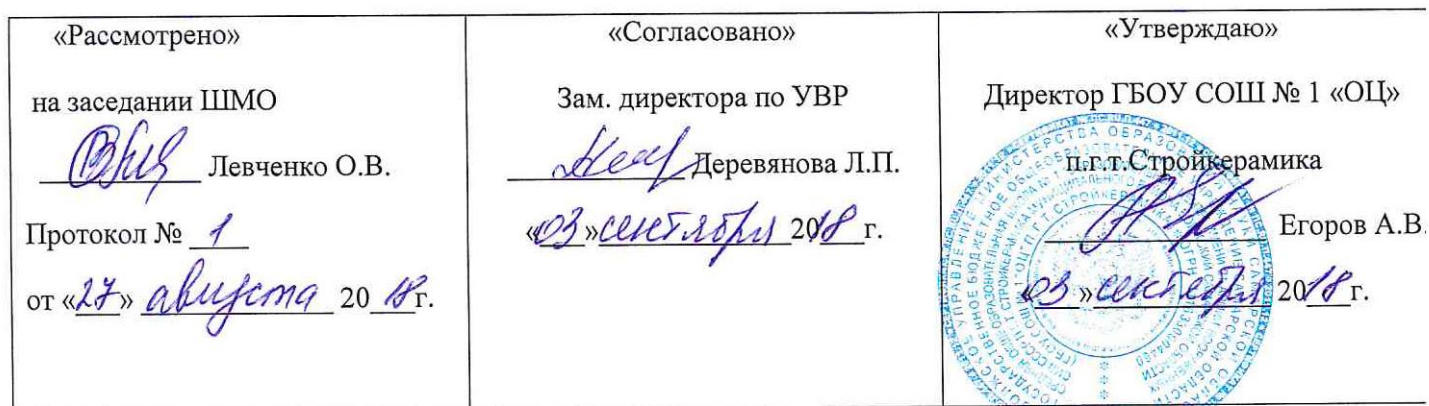 «Рассмотрено»
на заседании ШМО
Левченко О.В.
Протокол № 1
от «27» августа 2018г.
«Согласовано»
Зам. директора по УВР
Деревянова Л.П.
«03» сентября 2018г.
«Утверждаю»
Директор ГБОУ СОШ № 1 «ОЦ»
п.г.т.Стройкерамика
Егоров А.В.
«03» сентября 2018г.